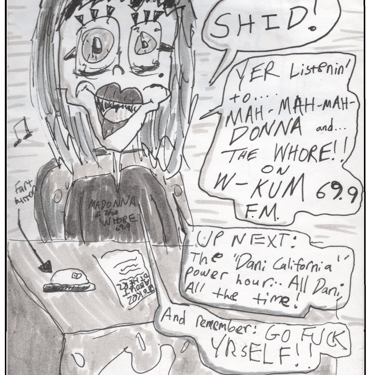 SHID!
YER Listenin'
to.....
MAH-MAH-MAH-
DONNA and...
THE WHORE!!
ON
W-KUM 69.9
F.M.
fart
MADONNA
& the
WHORE!
69.9
UP NEXT:
The 'Dani California'
power hour.. All Dani,
All the time!
And remember: GO FUCK
YRSELF!!